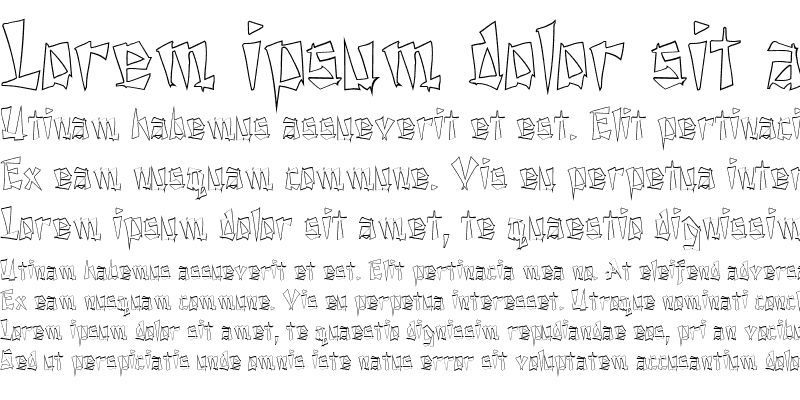 Lorem ipsum dolor sit a
Utinam habemus assueverit et est. Elit pertinaci
Ex eam nusquam commune. Vis eu perpetua inter
Lorem ipsum dolor sit amet, te quaestio dignissim
Utinam habemus assueverit et est. Elit pertinacia mea no. At eleifend adversa
Ex eam nusquam commune. Vis eu perpetua interesset. Utroque nominati concl
Lorem ipsum dolor sit amet, te quaestio dignissim repudiandae eos, pri an vocibu
Sed ut perspiciatis unde omnis iste natus error sit voluptatem accusantium dolo